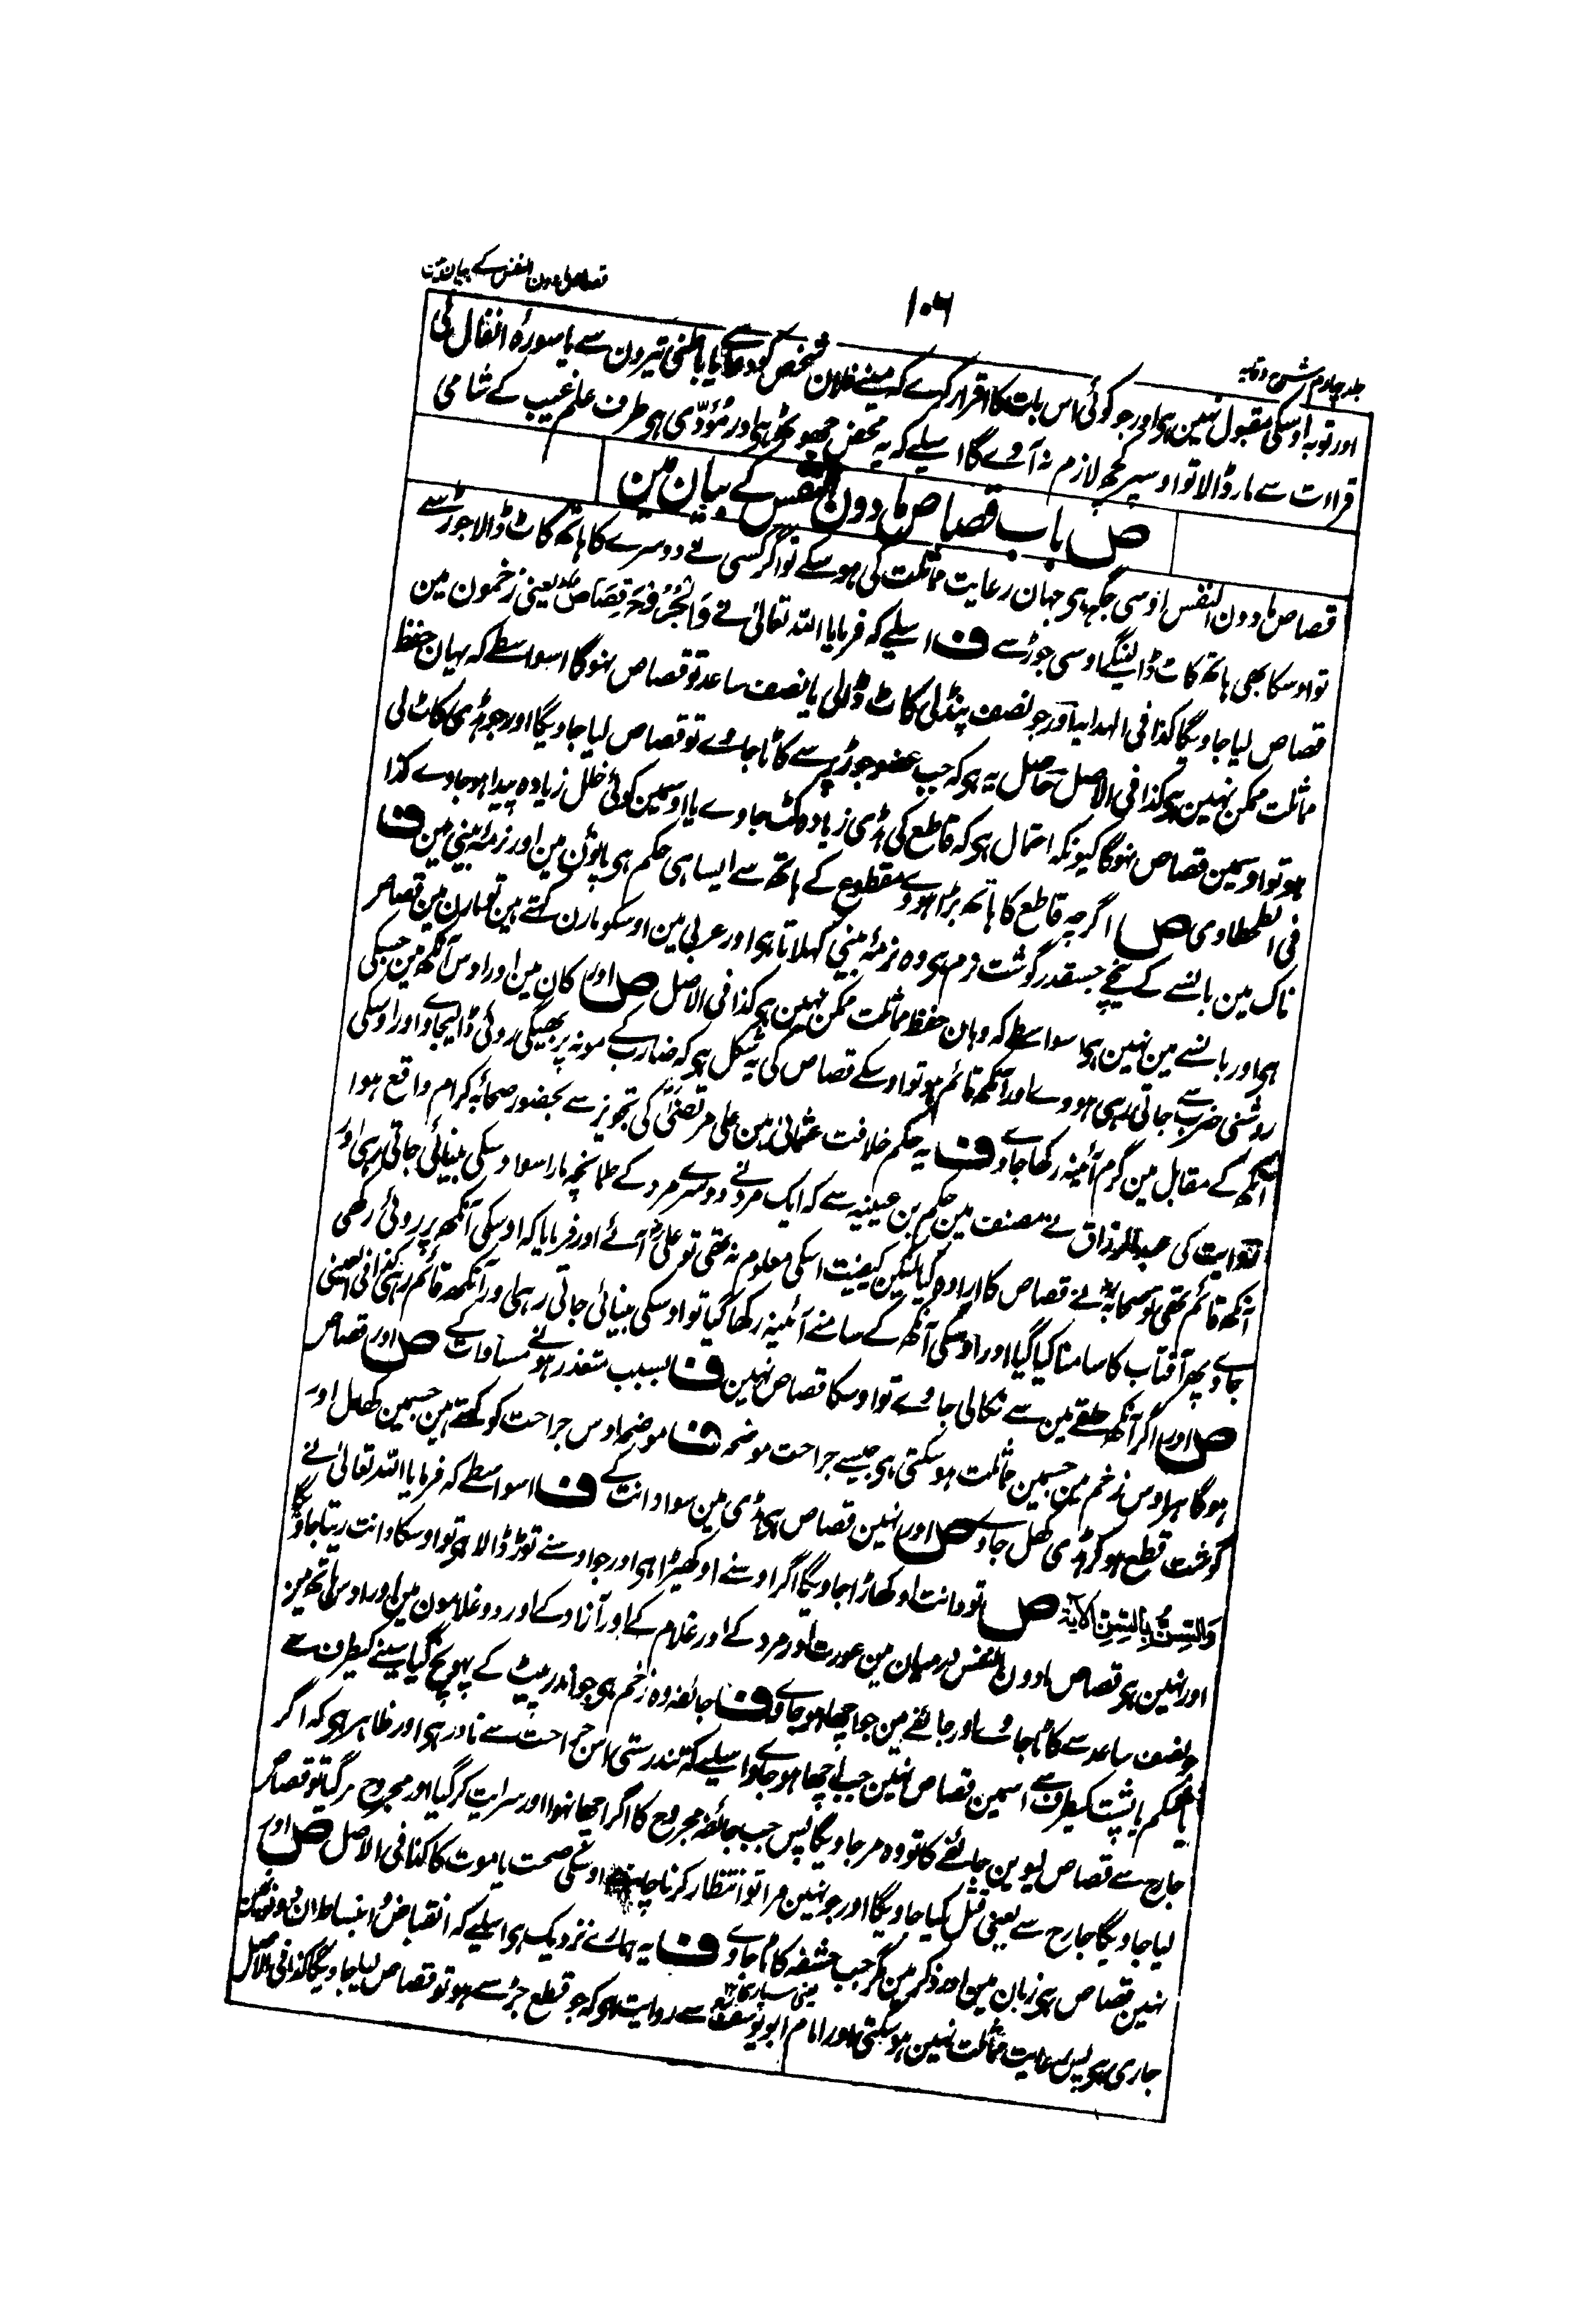 جلد چهارم شرح وقایہ
۱۰۶
قصاص مادون النفس کے بیان مین
اور توبہ اوسکی مقبول نہین ہی اور جو کوئی اس بات کا اقرار کرے کہ مینے فلان شخص کو دعا سے یا باطنی تیرون سے یا سورۂ انفال کی
قراات سے مار ڈالا تو اوسپر کچھ لازم نہ آوے گا اسلیے کہ یہ محض جھوٹ ہی اور مُؤَدّی ہی طرف علم غیب کے شامی
ص باب قصاص مادون النفس کے بیان مین
قصاص مادون النفس اوسی جگہ ہی جہان رعایت مماثلت کی ہو سکے تو اگر کسی نے دوسرے کا ہاتھ کاٹ ڈالا جوڑ سے
تو اوسکا بھی ہاتھ کاٹ ڈالینگے اوسی جوڑ سے ف اسلیے کہ فرمایا اللہ تعالیٰ نے وَالْجُرُوْحَ قِصَاصٌ یعنی زخمون مین
قصاص لیا جاویگا کذا فی الہدایہ اور جو نصف پنڈلی کاٹ ڈالی یا نصف ساعد تو قصاص نہوگا اسواسطے کہ یہان حفظ
مماثلت ممکن نہین ہی کذا فی الاصل حاصل یہ ہی کہ جب عضو جوڑ پر سے کاٹا جاوے تو قصاص لیا جاویگا اور جو ہڈی کاٹ لی
ہو تو اوسمین قصاص نہوگا کیونکہ احتمال ہی کہ قاطع کی ہڈی زیادہ کٹ جاوے یا اوسمین کوئی خلل زیادہ پیدا ہو جاوے کذا
فی الطحطاوی ص اگرچہ قاطع کا ہاتھ بڑا ہووے مقطوع کے ہاتھ سے ایسا ہی حکم ہی پاؤن مین اور نرمۂ بینی مین ف
ناک مین بانسے کے نیچے جسقدر گوشت نرم ہی وہ نرمۂ بینی کہلاتا ہی اور عربی مین اوسکو مارن کہتے ہین تو مارن مین قصاص
ہی اور بانسے مین نہین ہی اسواسطے کہ وہان حفظ مماثلت ممکن نہین ہی کذا فی الاصل ص اور کان مین اور اوس آنکھ مین جسکی
روشنی ضرب سے جاتی رہی ہووے اور آنکھ قائم ہو تو اوسکے قصاص کی یہ شکل ہی کہ ضارب کے مونہ پر بھیگی روئی ڈالیجاوے اور اوسکی
آنکھ کے مقابل مین گرم آئینہ رکھا جاوے ف یہ حکم خلافت عثمانؓ مین علی مرتضیٰؓ کی تجویز سے بحضور صحابۂ کرام واقع ہوا
روایت کی عبدالرزاق نے مصنف مین حکم بن عیینہ سے کہ ایک مرد نے دوسرے مرد کے طمانچہ مارا سو اوسکی بینائی جاتی رہی اور
آنکھ قائم تھی تو صحابہؓ نے قصاص کا ارادہ کیا لیکن کیفیت اسکی معلوم نہ تھی تو علیؓ آئے اور فرمایا کہ اوسکی آنکھ پر روئی رکھی
جاوے پھر آفتاب کا سامنا کیا گیا اور اوسکی آنکھ کے سامنے آئینہ رکھا گیا تو اوسکی بینائی جاتی رہی اور آنکھ قائم رہی کذا فی العینی
ص اور اگر آنکھ حلقے مین سے نکالی جاوے تو اوسکا قصاص نہین ف بسبب متعذر ہونے مساوات کے ص اور قصاص
ہوگا ہر اوس زخم مین جسمین مماثلت ہو سکتی ہی جیسے جراحت موضحہ ف موضحہ اوس جراحت کو کہتے ہین جسمین کھال اور
گوشت قطع ہو کر ہڈی کھل جاوے ص اور نہین قصاص ہی ہڈی مین سوا دانت کے ف اسواسطے کہ فرمایا اللہ تعالیٰ نے
وَالسِّنَّ بِالسِّنِّ الآیۃ ص تو دانت اوکھاڑا جاویگا اگر اوسنے اوکھیڑا ہی اور جو اوسنے توڑ ڈالا ہی تو اوسکا دانت ریتا جاویگا
اور نہین ہی قصاص مادون النفس درمیان مین عورت اور مرد کے اور غلام کے اور آزاد کے اور دو غلامون مین اور اوس ہاتھ مین
جو نصف ساعد سے کاٹا جاوے اور جائفے مین جو اچھا ہو جاوے ف جائفہ وہ زخم ہی جو اندر پیٹ کے پہونچ گیا سینے کیطرف سے
یا شکم یا پشت کیطرف سے اسمین قصاص نہین جب اچھا ہو جاوے اسلیے کہ تندرستی اس جراحت سے نادر ہی اور ظاہر ہی کہ اگر
جارح سے قصاص لیوین جائفے کا تو وہ مر جاویگا پس جب جائفہ مجروح کا اگر اچھا نہوا اور سرایت کر گیا اور مجروح مر گیا تو قصاص
لیا جاویگا جارح سے یعنی قتل کیا جاویگا اور جو نہین مرا تو انتظار کرنا چاہیے اوسکی صحت یا موت کا کذا فی الاصل ص اور
نہین قصاص ہی زبان مین اور ذکر مین مگر جب حشفہ کاٹا جاوے ف یہ ہمارے نزدیک ہی اسلیے کہ انقباض و انبساط ان دونون مین
یعنی سپاری
جاری ہی پس رعایت مماثلت نہین ہو سکتی اور امام ابو یوسفؒ سے روایت ہی کہ جو قطع جڑ سے ہو تو قصاص لیا جاویگا کذا فی الاصل